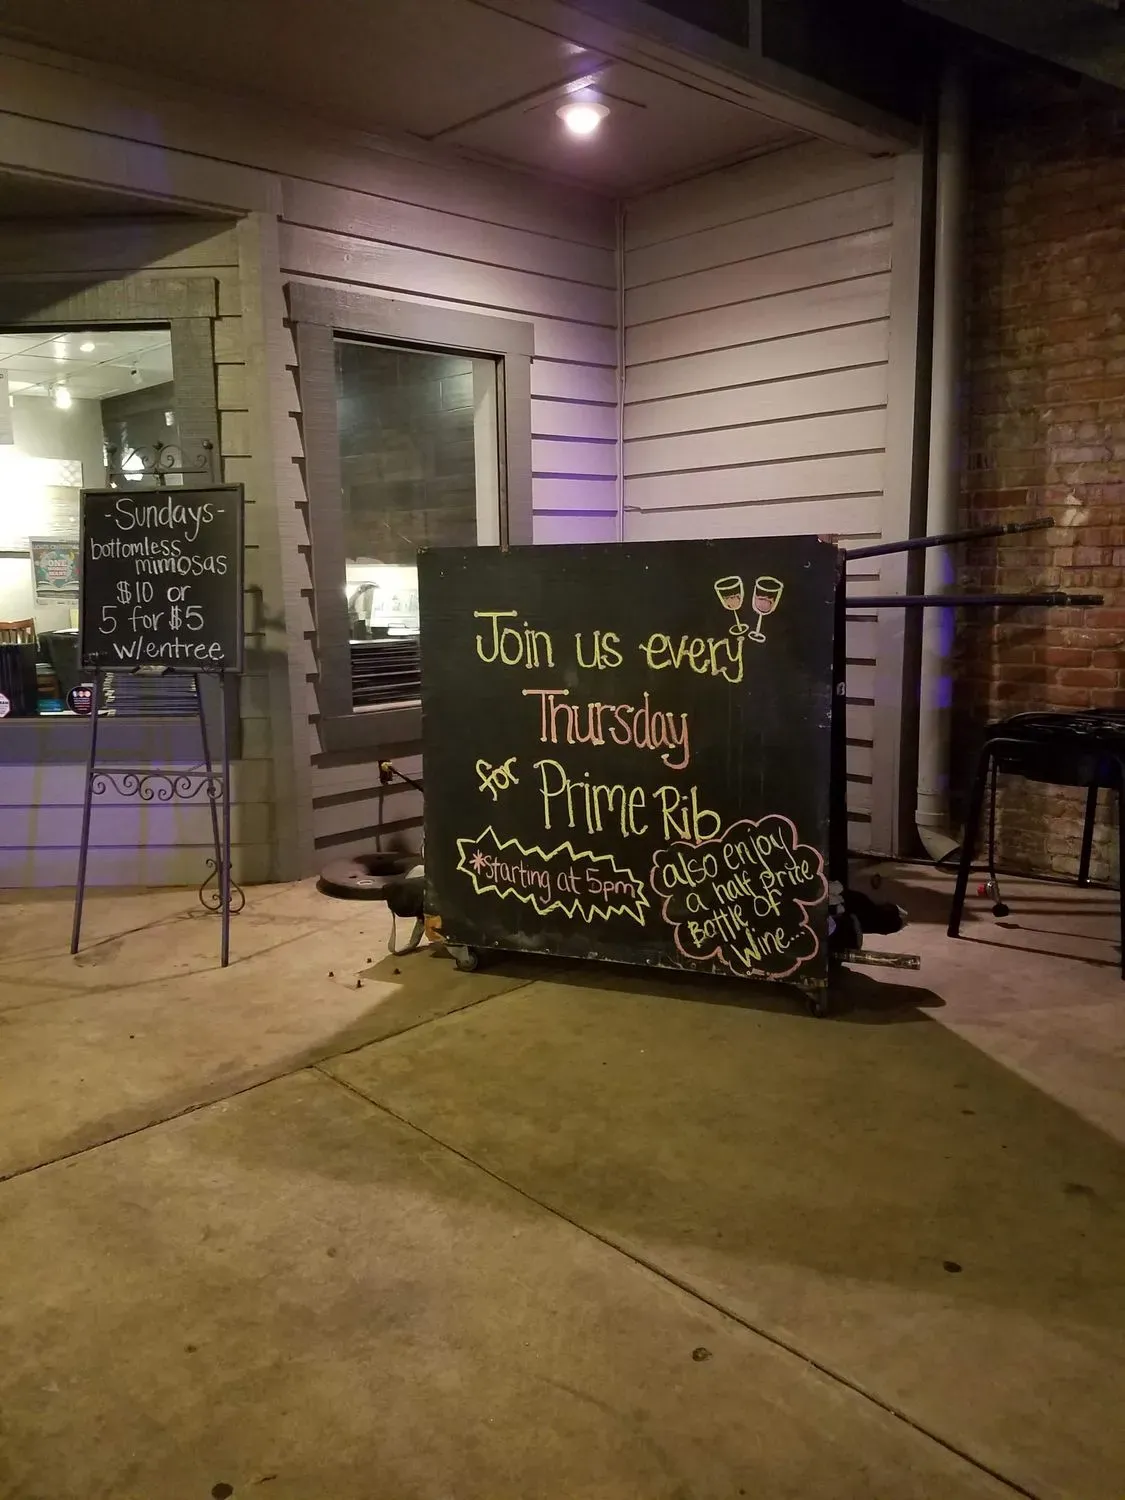 -Sundays-
bottomless
mimosas
$10 or
5 for $5
w/entree
Join us every
Thursday
for Prime Rib
*Starting at 5pm
also enjoy
a half price
Bottle of
Wine...